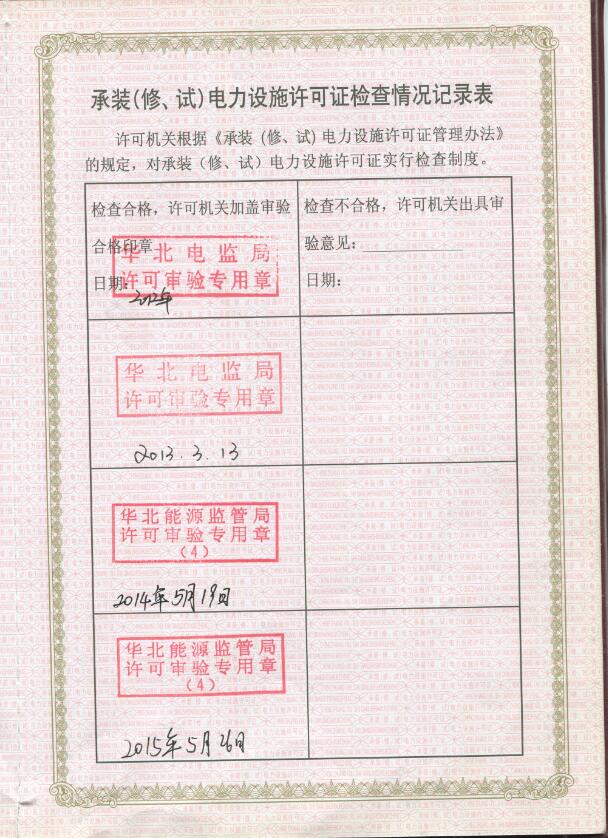 承装(修、试)电力设施许可证检查情况记录表
许可机关根据《承装(修、试)电力设施许可证管理办法》
的规定，对承装(修、试)电力设施许可证实行检查制度。
检查合格，许可机关加盖审验
合格印章
日期:
华北电监局
许可审验专用章
2012年
检查不合格，许可机关出具审
验意见:
日期:
华北电监局
许可审验专用章
2013.3.13
华北能源监管局
许可审验专用章
(4)
2014年5月19日
华北能源监管局
许可审验专用章
(4)
2015年5月26日